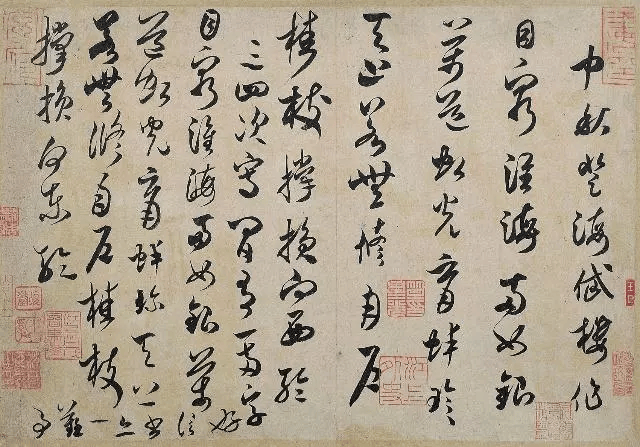 中秋登海岱樓作
目窮淮海兩如銀
萬道虹光育蚌珍
天上若無修月户
桂枝撐損向西輪
三四次寫間有一兩字
好信書亦一難事
目窮淮海兩如銀萬
道虹光育蚌珍天上
若無修月户桂枝
撐損向東輪